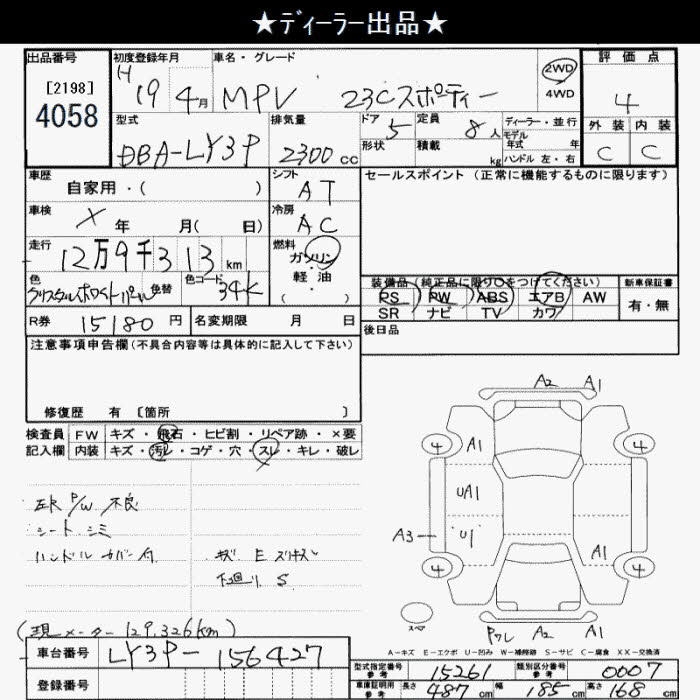 ★ディーラー出品★
出品番号 初度登録年月 車名・グレード 評価点
[2198] H 19年 4月 MPV 23Cスポーティー 2WD 4WD 4
4058
型式 排気量 ドア 定員 ディーラー・並行 外装 内装
DBA-LY3P 2300cc 5 8人 モデル年式 年 C C
形状 積載 kg ハンドル 左・右
車歴 シフト セールスポイント (正常に機能するものに限ります)
自家用・( ) AT
車検 X 年 月( 日) 冷房 AC
走行 12万9千313km 燃料 ガソリン・軽・油 ( )
色 クリスタルホワイトパール 色替 色コード 34K
装備品 (純正品に限り○をつけてください) 新車保証書
PS PW ABS エアB AW 有・無
SR ナビ TV カワ
R券 15180円 名変期限 月 日 後日品
注意事項申告欄(不具合内容等は具体的に記入して下さい)
修復歴 有 [箇所 ]
検査員 FW キズ・飛石・ヒビ割・リペア跡・×要
記入欄 内装 キズ・汚レ・コゲ・穴・スレ・キレ・破レ
A2 A1
4 A1 4
UA1
左R P/W 不良
シート シミ
A3 U1
ハンドルカバー付 キズ E A1
下廻り S
4 4
スペア
Pワレ A2 A1
(現メーター 129,326km)
A-キズ E-エクボ U-凹み W-補修跡 S-サビ C-腐食 XX-交換済
車台番号 LY3P-156427
型式指定番号 参考 15261 類別区分番号 参考 0007
登録番号
車庫証明用 参考 長さ 487cm 幅 185cm 高さ 168cm